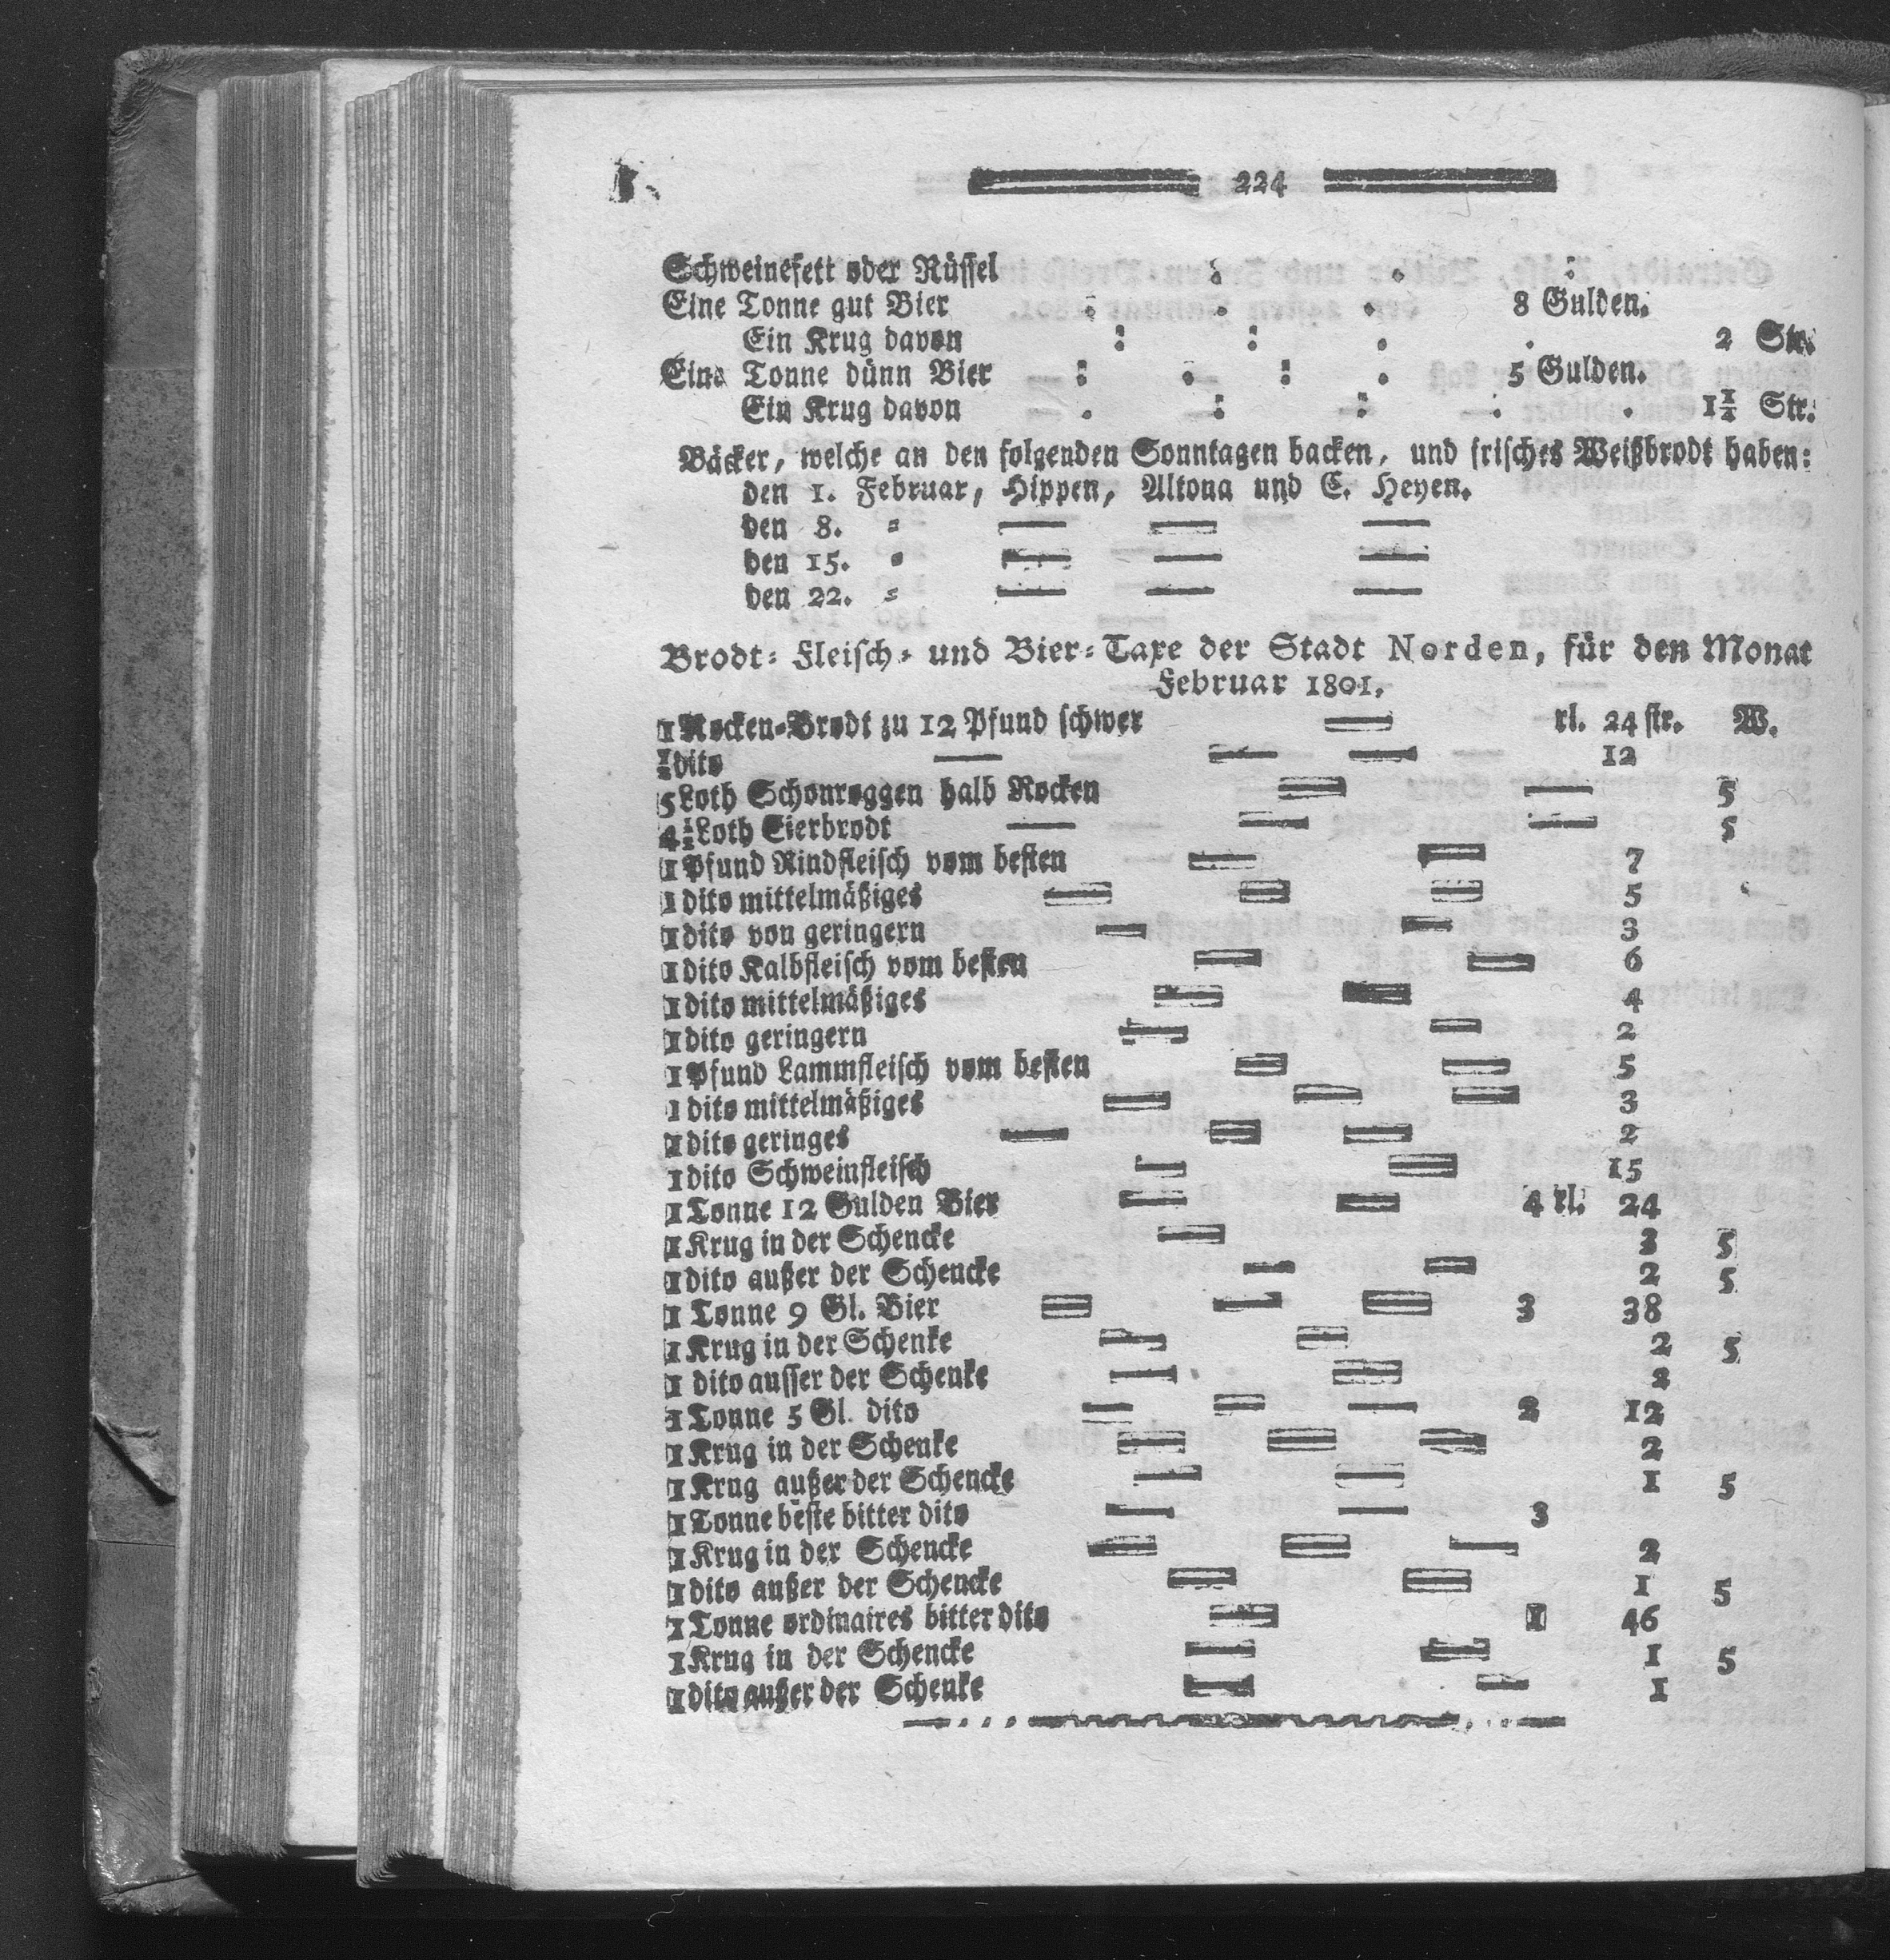 224
Schweinefett oder Rüssel
Eine Tonne gut Bier 8 Gulden.
Ein Krug davon 2 Str.
Eine Tonne dünn Bier 5 Gulden.
Ein Krug davon 1½ Str.
Bäcker, welche an den folgenden Sonntagen backen, und frisches Weißbrodt haben:
den 1. Februar, Hippen, Altona und C. Heyen.
den 8. = — — —
den 15. = — — —
den 22. = — — —
Brodt= Fleisch= und Bier=Taxe der Stadt Norden, für den Monat
Februar 1801.
1 Rocken=Brodt zu 12 Pfund schwer — rl. 24 str. W.
½ dito — — — 12
5 Loth Schonroggen halb Rocken — — 5
4½ Loth Eierbrodt — — — 5
1 Pfund Rindfleisch vom besten — — 7
1 dito mittelmäßiges — — — 5
1 dito von geringern — — 3
1 dito Kalbfleisch vom besten — — 6
1 dito mittelmäßiges — — 4
1 dito geringern — — 2
1 Pfund Lammfleisch vom besten — — 5
1 dito mittelmäßiges — — — 3
1 dito geringes — — — 2
1 dito Schweinfleisch — — 15
1 Tonne 12 Gulden Bier — — 4 rl. 24
1 Krug in der Schencke — 3 5
1 dito außer der Schencke — — 2 5
1 Tonne 9 Gl. Bier — — — 3 38
1 Krug in der Schenke — — 2 5
1 dito ausser der Schenke — — 2
1 Tonne 5 Gl. dito — — — 2 12
1 Krug in der Schenke — — — 2
1 Krug außer der Schencke — — 1 5
1 Tonne beste bitter dito — — 3
1 Krug in der Schencke — — — 2
1 dito außer der Schencke — — 1 5
1 Tonne ordinaires bitter dito — 1 46
1 Krug in der Schencke — — 1 5
1 dito außer der Schenke — — 1